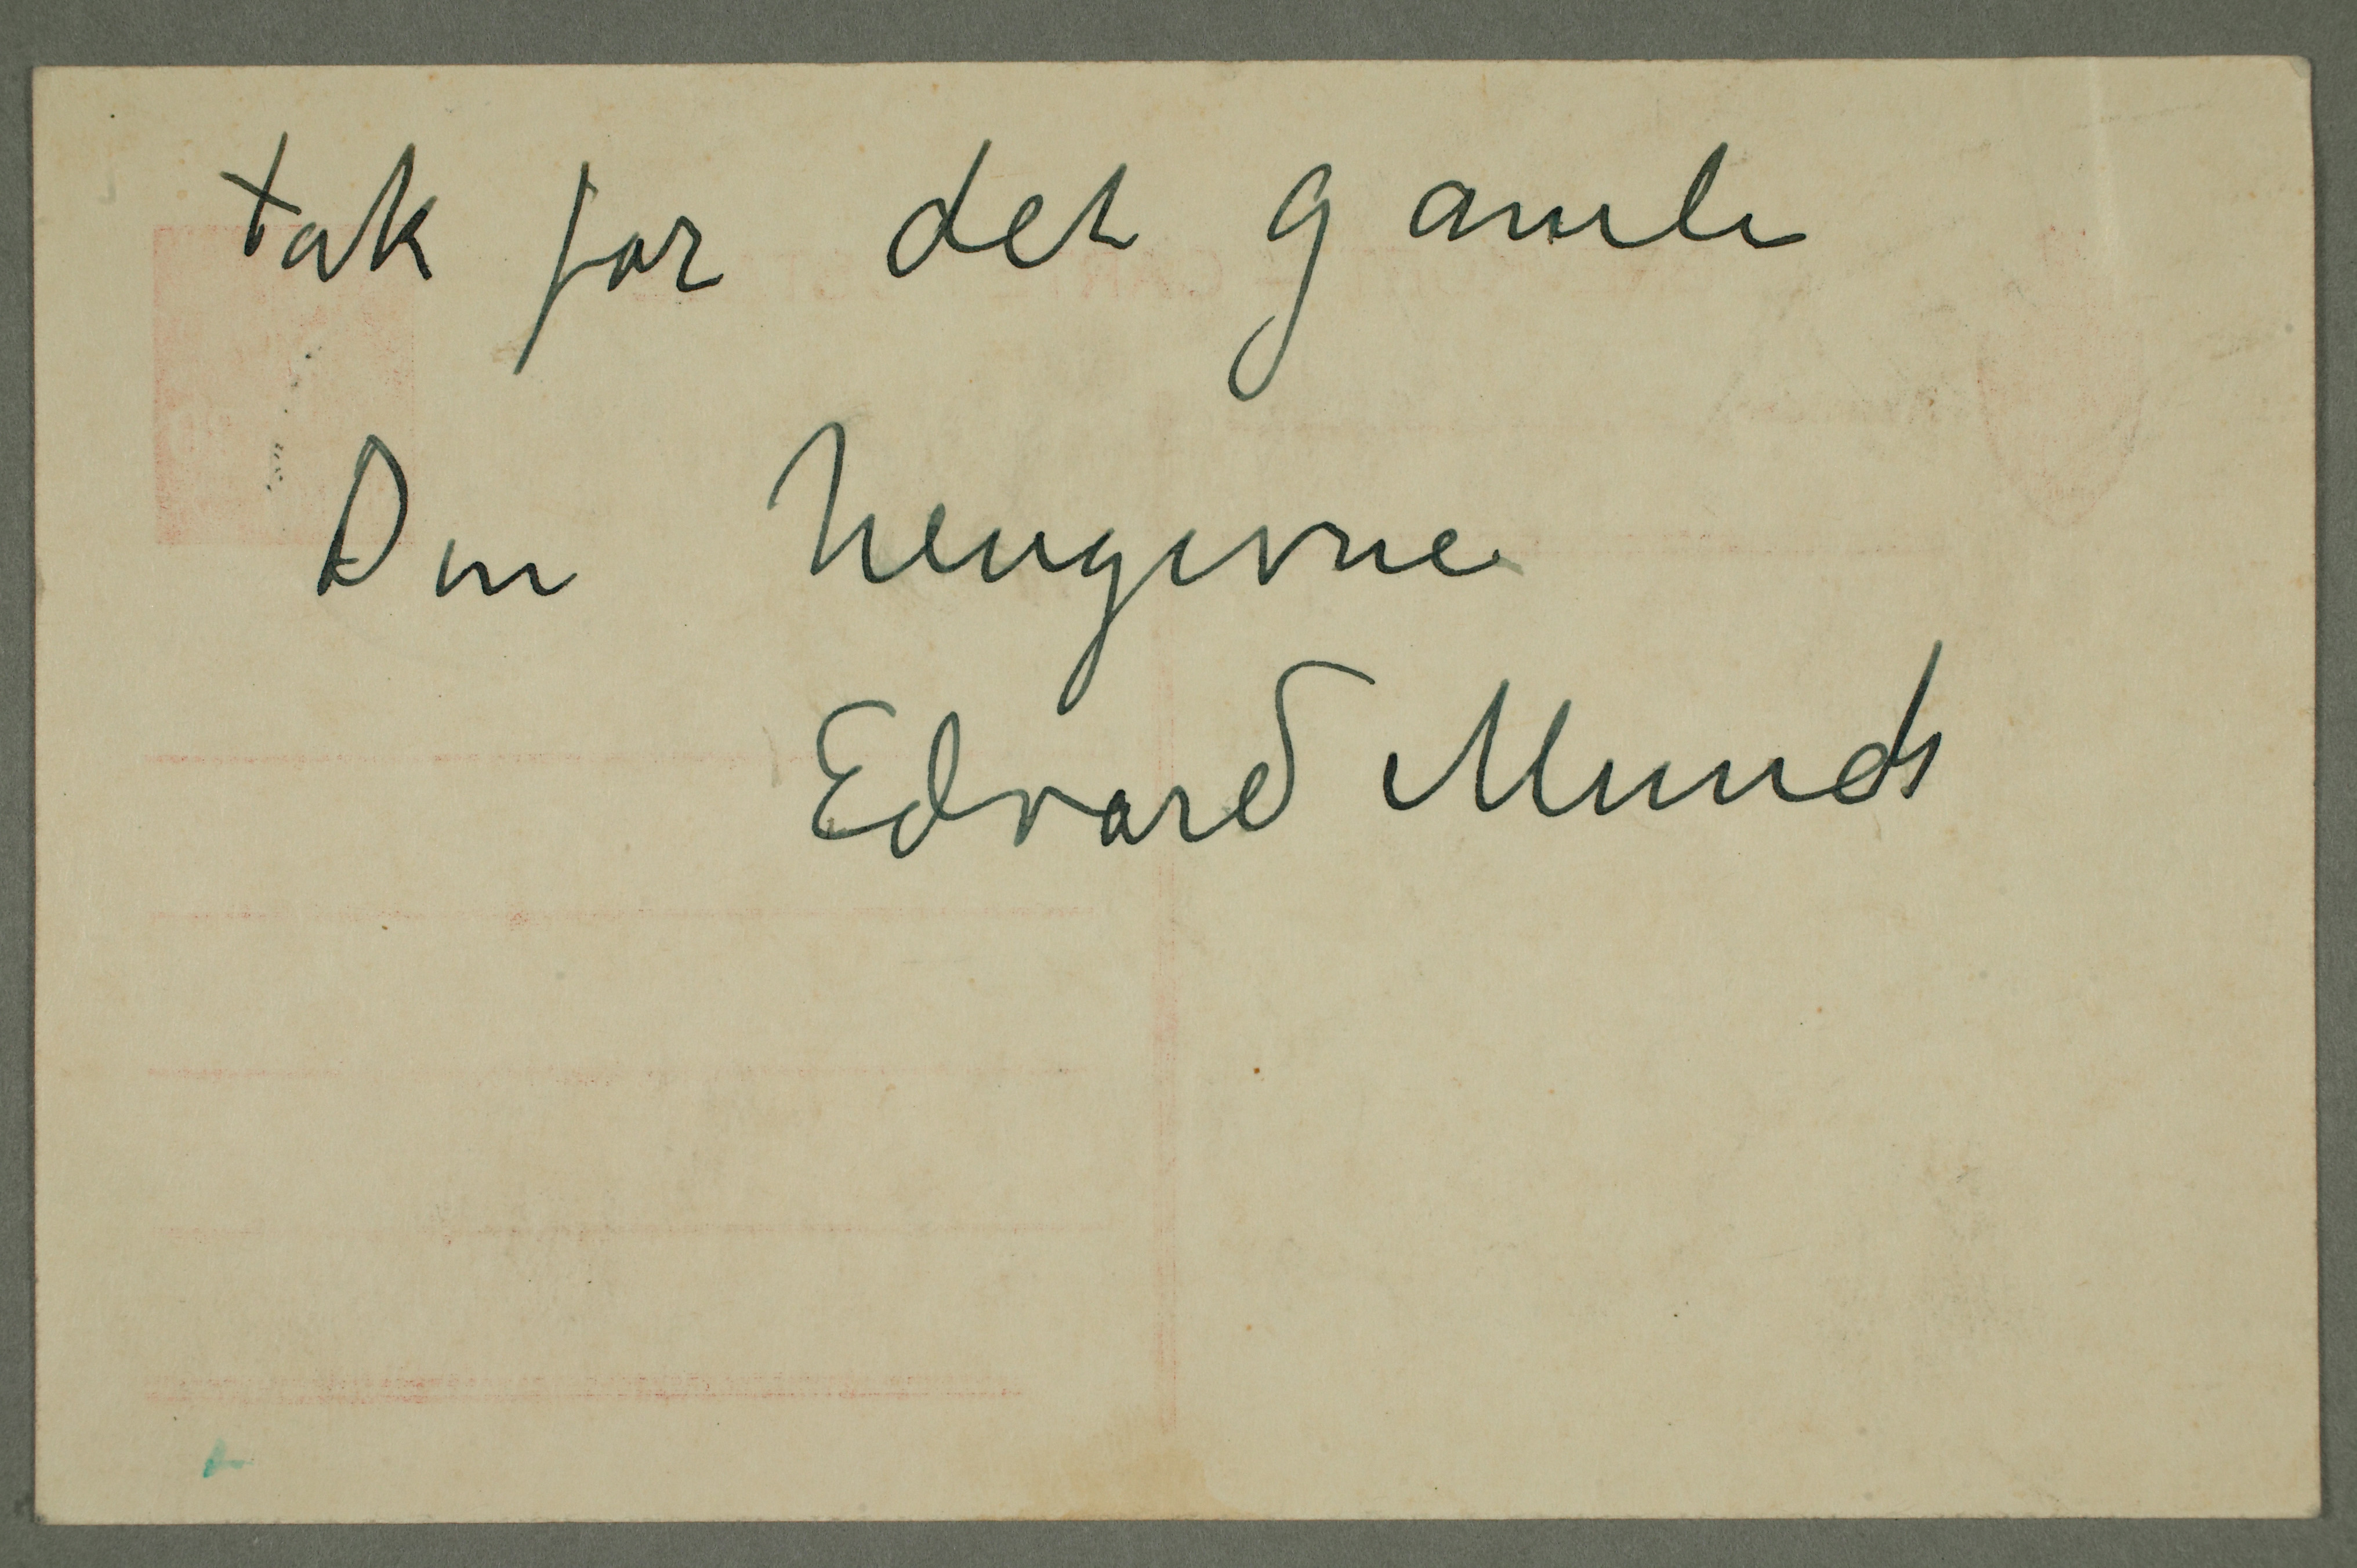 tak for det gamle
Din hengivne
Edvard Munch